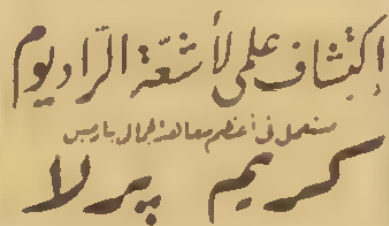 إكتشاف علمى لأشعّة الرّاديوم
مستعمل فى أعظم معاهد الجمال بباريس
كريم پرلا